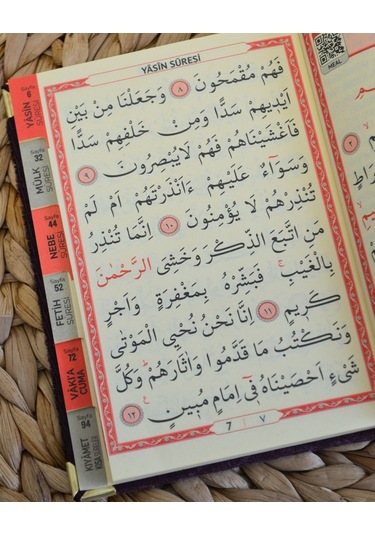 YÂSÎN SÛRESİ
فَهُمْ مُقْمَحُونَ ﴿٨﴾ وَجَعَلْنَا مِنْ بَيْنِ
اَيْد۪يهِمْ سَدًّا وَمِنْ خَلْفِهِمْ سَدًّا
فَاَغْشَيْنَاهُمْ فَهُمْ لَايُبْصِرُونَ ﴿٩﴾
وَسَوَٓاءٌ عَلَيْهِمْ ءَاَنْذَرْتَهُمْ اَمْ لَمْ
تُنْذِرْهُمْ لَا يُؤْمِنُونَ ﴿١٠﴾ اِنَّمَا تُنْذِرُ
مَنِ اتَّبَعَ الذِّكْرَ وَخَشِيَ الرَّحْمٰنَ
بِالْغَيْبِۚ فَبَشِّرْهُ بِمَغْفِرَةٍ وَاَجْرٍ
كَر۪يمٍ ﴿١١﴾ اِنَّا نَحْنُ نُحْيِ الْمَوْتٰى
وَنَكْتُبُ مَا قَدَّمُوا وَاٰثَارَهُمْۜ وَكُلَّ
شَيْءٍ اَحْصَيْنَاهُ ف۪ٓي اِمَامٍ مُب۪ينٍ۟ ﴿١٢﴾
7 / ٧
Sayfa 6
YÂSÎN SÛRESİ
Sayfa 32
MÜLK SÛRESİ
Sayfa 44
NEBE SÛRESİ
Sayfa 52
FETİH SÛRESİ
Sayfa 72
VÂKIA CUMA
Sayfa 94
KIYÂMET KISA SÛRELER
MEAL